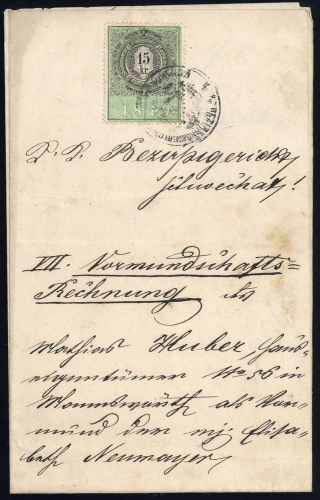 15
kr
K. K. Bezirksgericht
Schwechat!
VII. Vormundschafts=
Rechnung des
Mathias Huber, Haus=
eigentümer No 56 in
Mannswörth als Vor=
mund der mj. Elisa=
beth Neumayer